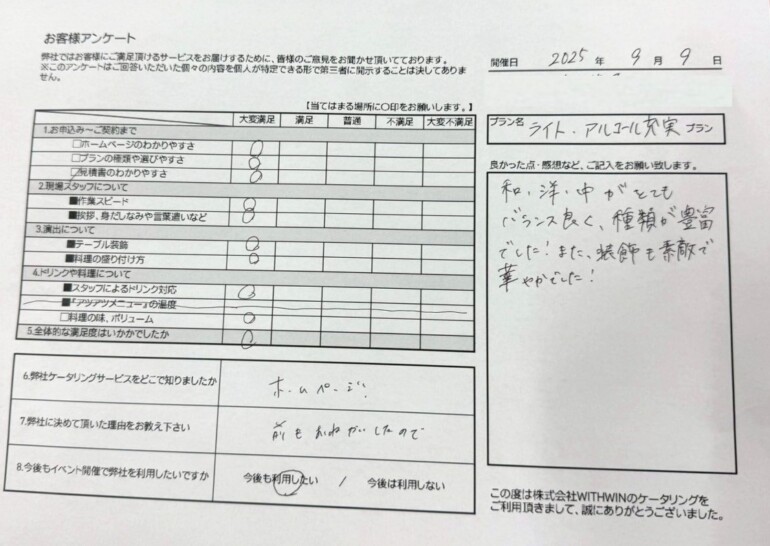 お客様アンケート
弊社ではお客様にご満足頂けるサービスをお届けするために、皆様のご意見をお聞かせ頂いております。
※このアンケートはご回答いただいた個々の内容を個人が特定できる形で第三者に開示することは決してありません。
開催日 2025 年 9 月 9 日
【当てはまる場所に〇印をお願いします。】
大変満足 満足 普通 不満足 大変不満足
1.お申込み～ご契約まで
□ホームページのわかりやすさ ○
□プランの種類や選びやすさ ○
□見積書のわかりやすさ ○
2.現場スタッフについて
■作業スピード ○
■挨拶、身だしなみや言葉遣いなど ○
3.演出について
■テーブル装飾 ○
■料理の盛り付け方 ○
4.ドリンクや料理について
■スタッフによるドリンク対応 ○
■『アツアツメニュー』の温度
□料理の味、ボリューム ○
5.全体的な満足度はいかがでしたか ○
6.弊社ケータリングサービスをどこで知りましたか ホームページ
7.弊社に決めて頂いた理由をお教え下さい 前もおねがいしたので
8.今後もイベント開催で弊社を利用したいですか 今後も利用したい / 今後は利用しない
プラン名 ライト・アルコール充実 プラン
良かった点・感想など、ご記入をお願い致します。
和・洋・中がとても
バランス良く、種類が豊富
でした！また、装飾も素敵で
華やかでした！
この度は株式会社WITHWINのケータリングを
ご利用頂きまして、誠にありがとうございました。